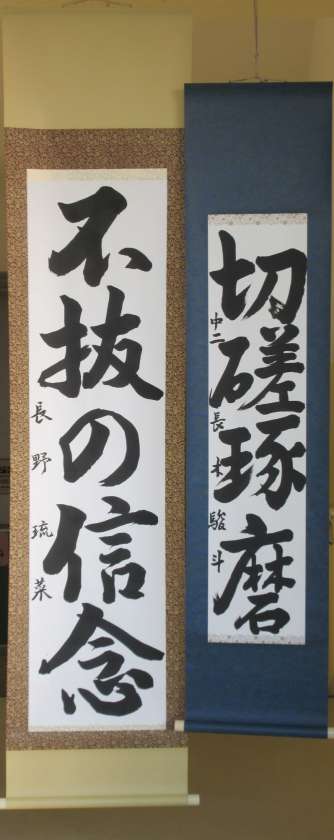 切磋琢磨
中二 長木駿斗
不抜の信念
長野琉菜